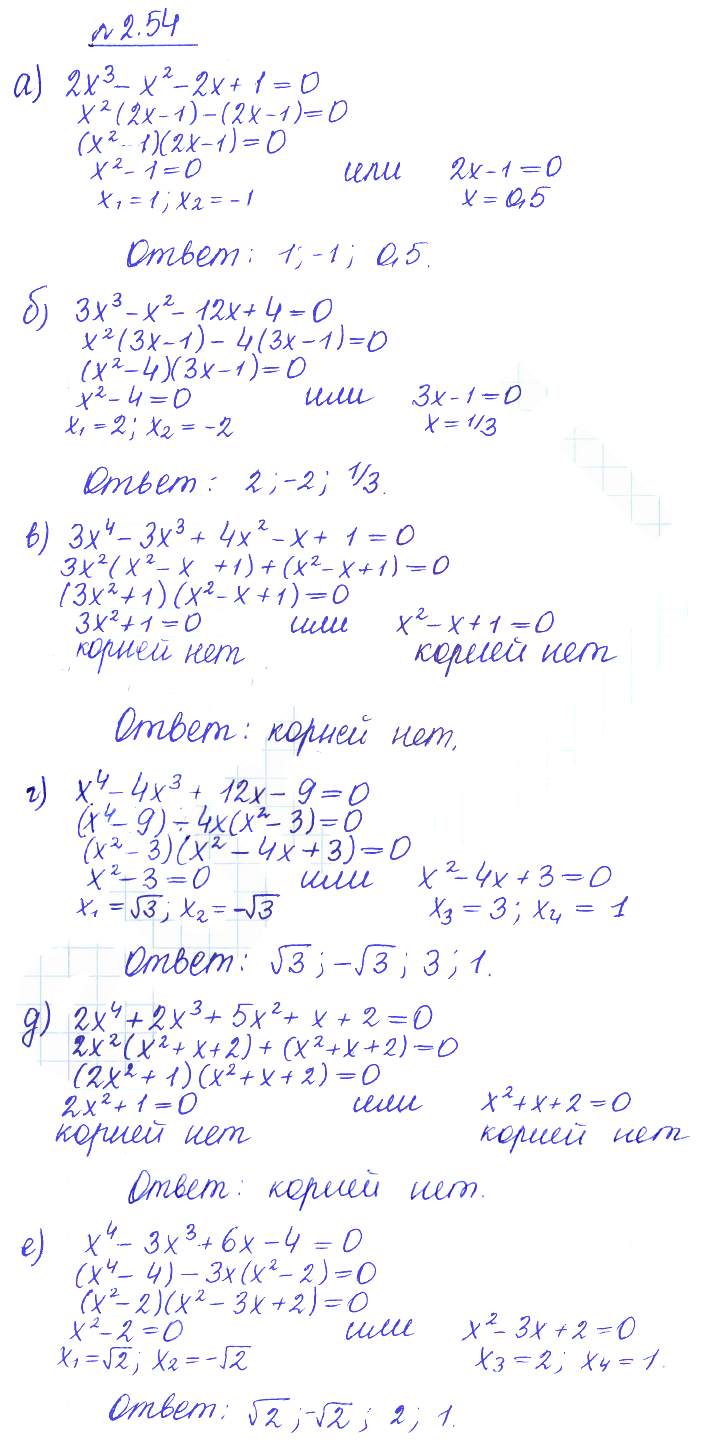 № 2.54
а) 2x³ - x² - 2x + 1 = 0
x²(2x-1) - (2x-1) = 0
(x² - 1)(2x-1) = 0
x² - 1 = 0 или 2x - 1 = 0
x₁ = 1; x₂ = -1 x = 0,5
Ответ: 1; -1; 0,5.
б) 3x³ - x² - 12x + 4 = 0
x²(3x-1) - 4(3x-1) = 0
(x² - 4)(3x-1) = 0
x² - 4 = 0 или 3x - 1 = 0
x₁ = 2; x₂ = -2 x = 1/3
Ответ: 2; -2; 1/3.
в) 3x⁴ - 3x³ + 4x² - x + 1 = 0
3x²(x² - x + 1) + (x² - x + 1) = 0
(3x² + 1)(x² - x + 1) = 0
3x² + 1 = 0 или x² - x + 1 = 0
корней нет корней нет
Ответ: корней нет.
г) x⁴ - 4x³ + 12x - 9 = 0
(x⁴ - 9) - 4x(x² - 3) = 0
(x² - 3)(x² - 4x + 3) = 0
x² - 3 = 0 или x² - 4x + 3 = 0
x₁ = √3; x₂ = -√3 x₃ = 3; x₄ = 1
Ответ: √3; -√3; 3; 1.
д) 2x⁴ + 2x³ + 5x² + x + 2 = 0
2x²(x² + x + 2) + (x² + x + 2) = 0
(2x² + 1)(x² + x + 2) = 0
2x² + 1 = 0 или x² + x + 2 = 0
корней нет корней нет
Ответ: корней нет.
е) x⁴ - 3x³ + 6x - 4 = 0
(x⁴ - 4) - 3x(x² - 2) = 0
(x² - 2)(x² - 3x + 2) = 0
x² - 2 = 0 или x² - 3x + 2 = 0
x₁ = √2; x₂ = -√2 x₃ = 2; x₄ = 1.
Ответ: √2; -√2; 2; 1.